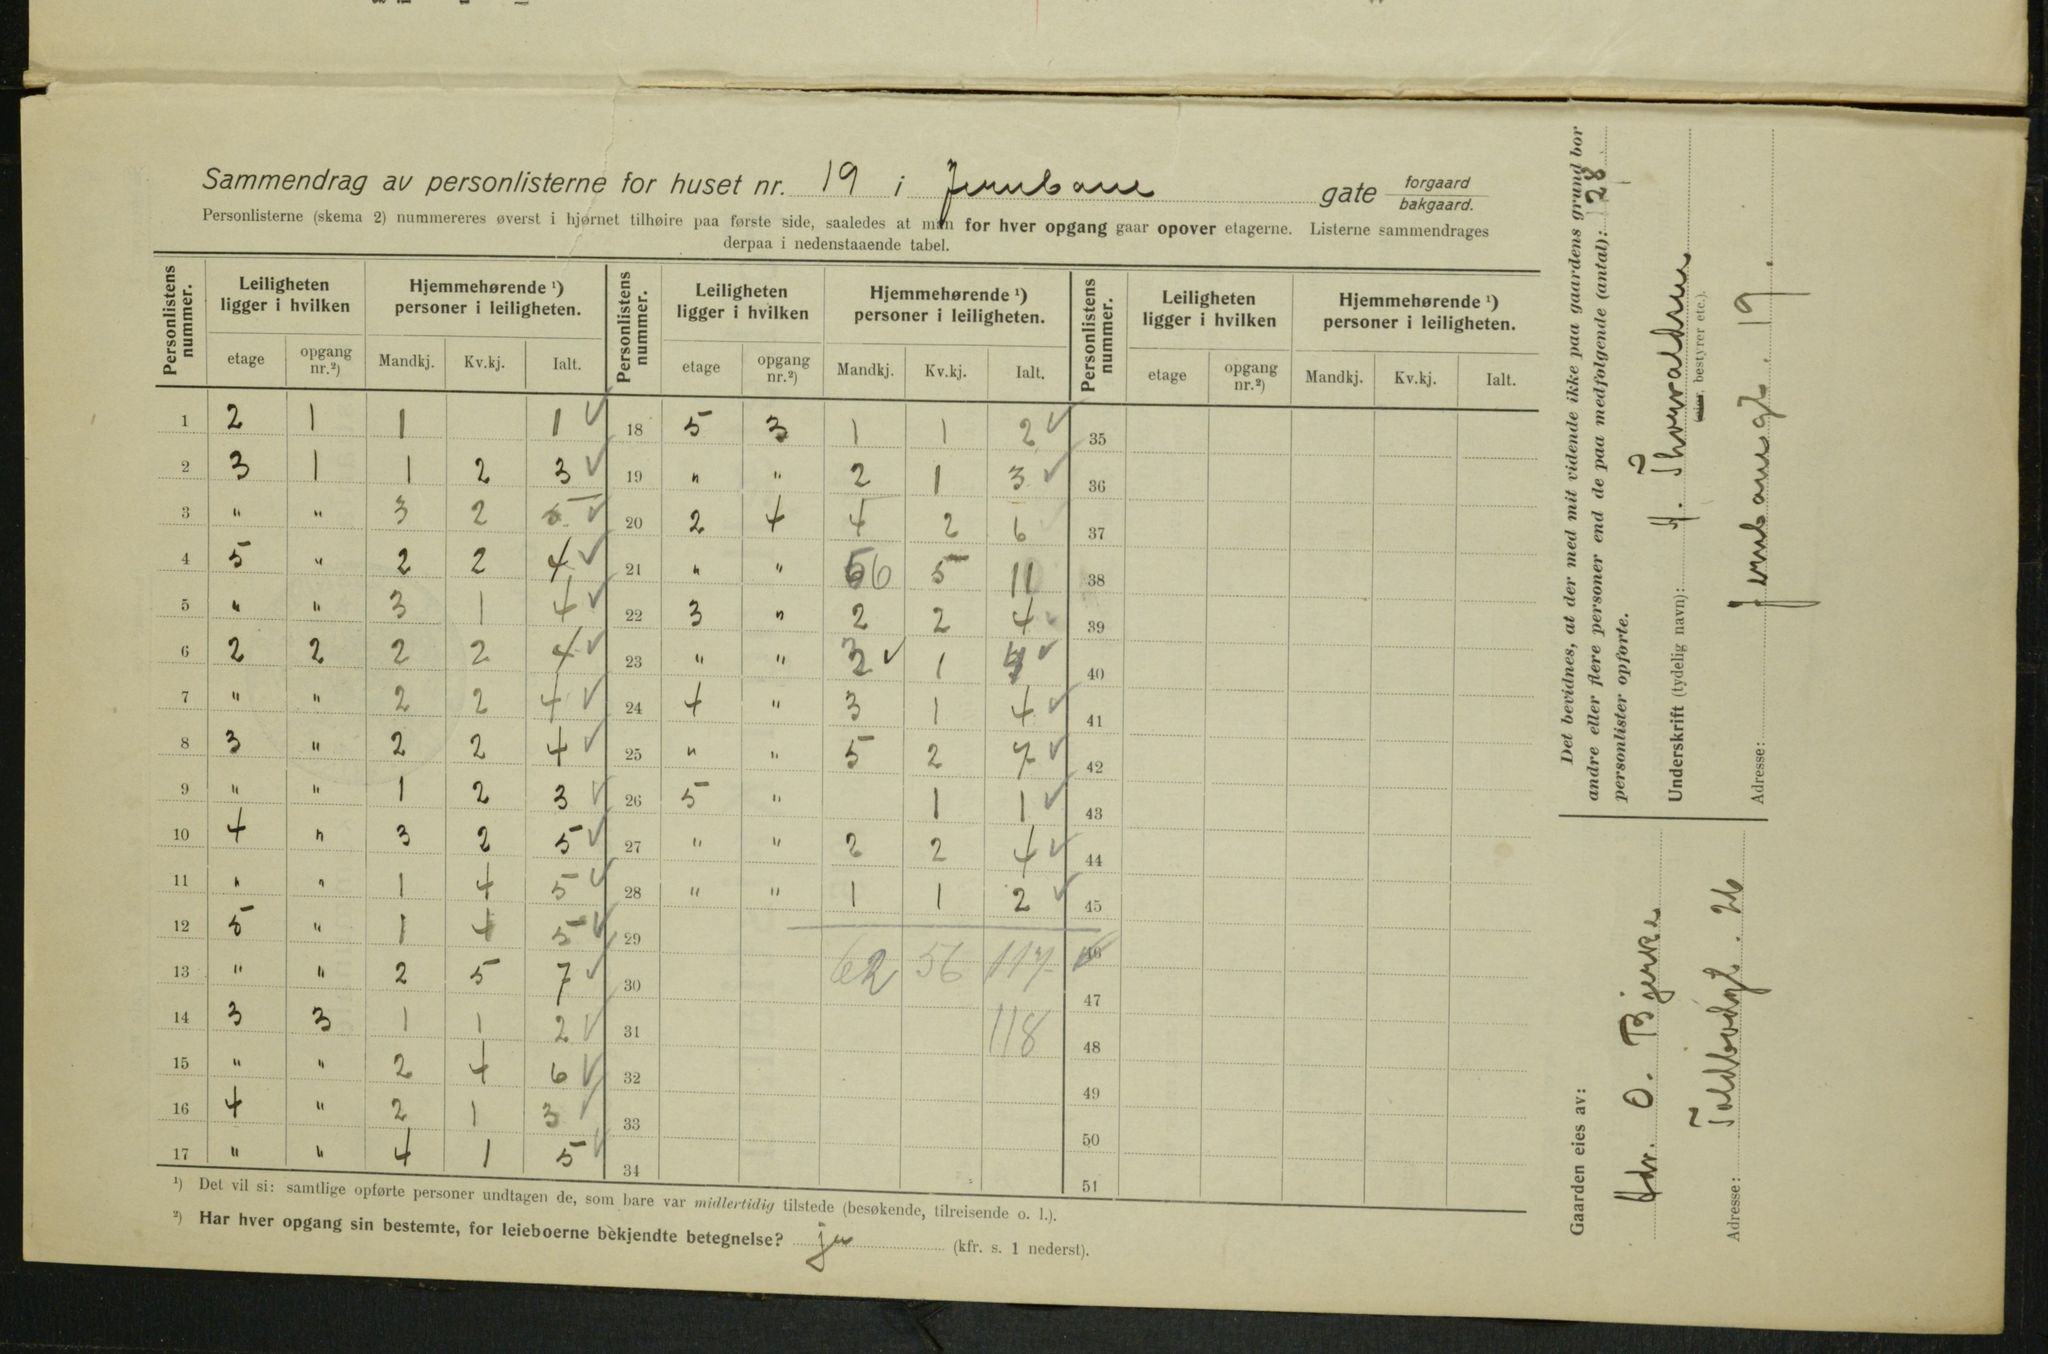 Sammendrag av personlisterne for huset nr. 19 i Jernbane gate forgaard bakgaard.
Personlisterne (skema 2) nummereres øverst i hjørnet tilhøire paa første side, saaledes at man for hver opgang gaar opover etagerne. Listerne sammendrages
derpaa i nedenstaaende tabel.
Personlistens nummer. Leiligheten ligger i hvilken Hjemmehørende ¹) personer i leiligheten. Personlistens nummer. Leiligheten ligger i hvilken Hjemmehørende ¹) personer i leiligheten. Personlistens nummer. Leiligheten ligger i hvilken Hjemmehørende ¹) personer i leiligheten.
etage opgang nr.²) Mandkj. Kv.kj. Ialt. etage opgang nr.²) Mandkj. Kv.kj. Ialt. etage opgang nr.²) Mandkj. Kv.kj. Ialt.
1 2 1 1 1 ✓ 18 5 3 1 1 2 ✓ 35
2 3 1 1 2 3 ✓ 19 " " 2 1 3 ✓ 36
3 " " 3 2 5 ✓ 20 2 4 4 2 6 ✓ 37
4 5 " 2 2 4 ✓ 21 " " 6 5 11 38
5 " " 3 1 4 ✓ 22 3 " 2 2 4 ✓ 39
6 2 2 2 2 4 ✓ 23 " " 3 ✓ 1 4 ✓ 40
7 " " 2 2 4 ✓ 24 4 " 3 1 4 ✓ 41
8 3 " 2 2 4 ✓ 25 " " 5 2 7 ✓ 42
9 " " 1 2 3 ✓ 26 5 " 1 1 ✓ 43
10 4 " 3 2 5 ✓ 27 " " 2 2 4 ✓ 44
11 " " 1 4 5 ✓ 28 " " 1 1 2 ✓ 45
12 5 " 1 4 5 ✓ 29 46
13 " " 2 5 7 ✓ 30 62 56 117 ✓ 47
14 3 3 1 1 2 ✓ 31 118 48
15 " " 2 4 6 ✓ 32 49
16 4 " 2 1 3 ✓ 33 50
17 " " 4 1 5 ✓ 34 51
¹) Det vil si: samtlige opførte personer undtagen de, som bare var midlertidig tilstede (besøkende, tilreisende o. l.).
²) Har hver opgang sin bestemte, for leieboerne bekjendte betegnelse? ja (kfr. s. 1 nederst).
Det bevidnes, at der med mit vidende ikke paa gaardens grund bor
andre eller flere personer end de paa medfølgende (antal): 28
personlister opførte.
Underskrift (tydelig navn): A. Thorvaldsen
eier, bestyrer etc.).
Adresse: Jernbanegt. 19.
Gaarden eies av:
Adv. O. Bjerke
Adresse: Toldbodgt. 26